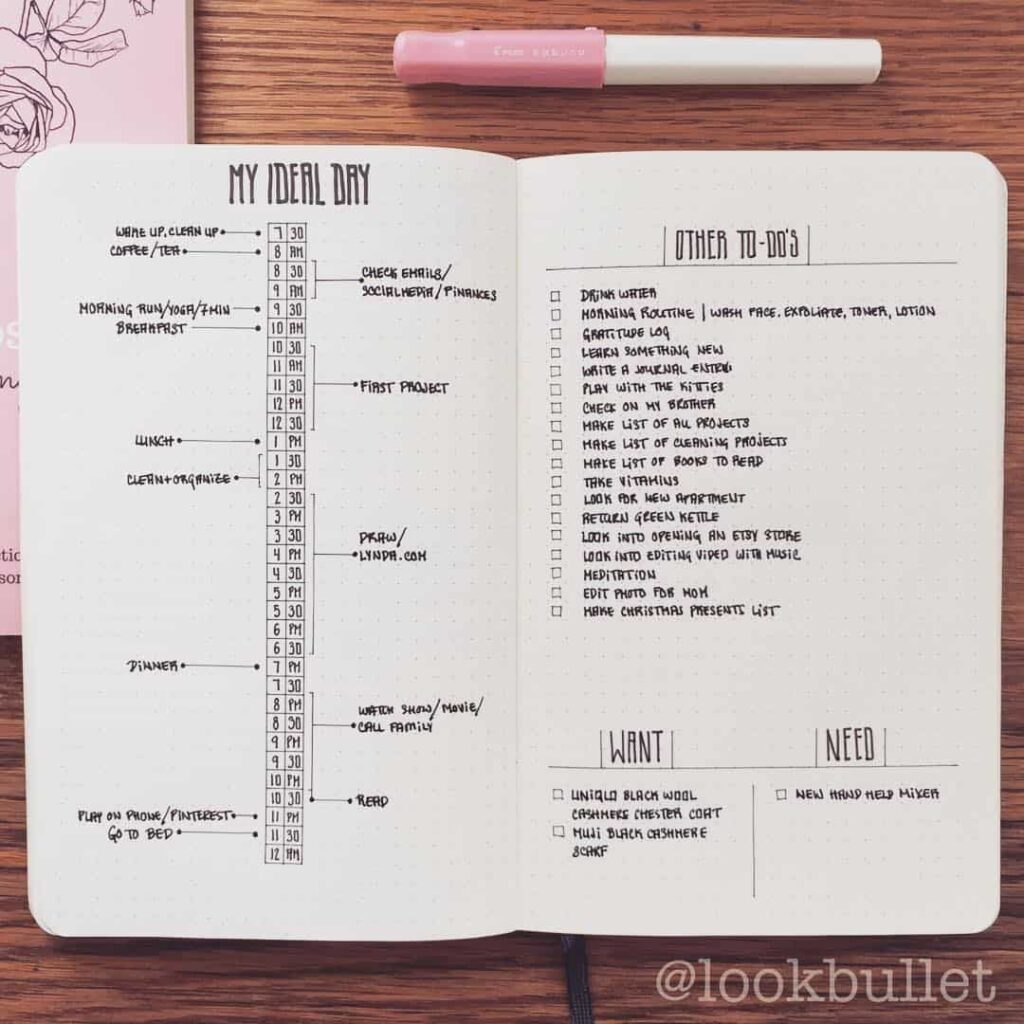 MY IDEAL DAY
WAKE UP, CLEAN UP
7 30
COFFEE/TEA
8 AM
8 30
CHECK EMAILS/
9 AM
SOCIALMEDIA/FINANCES
MORNING RUN/YOGA/7MIN
9 30
BREAKFAST
10 AM
10 30
11 AM
11 30
FIRST PROJECT
12 PM
12 30
LUNCH
1 PM
1 30
CLEAN+ORGANIZE
2 PM
2 30
3 PM
3 30
DRAW/
4 PM
LYNDA.COM
4 30
5 PM
5 30
6 PM
6 30
DINNER
7 PM
7 30
8 PM
WATCH SHOW/MOVIE/
8 30
CALL FAMILY
9 PM
9 30
10 PM
10 30
READ
PLAY ON PHONE/PINTEREST
11 PM
GO TO BED
11 30
12 AM
OTHER TO-DO'S
DRINK WATER
MORNING ROUTINE | WASH FACE. EXFOLIATE, TONER, LOTION
GRATITUDE LOG
LEARN SOMETHING NEW
WRITE A JOURNAL ENTRY
PLAY WITH THE KITTIES
CHECK ON MY BROTHER
MAKE LIST OF ALL PROJECTS
MAKE LIST OF CLEANING PROJECTS
MAKE LIST OF BOOKS TO READ
TAKE VITAMINS
LOOK FOR NEW APARTMENT
RETURN GREEN KETTLE
LOOK INTO OPENING AN ETSY STORE
LOOK INTO EDITING VIDEO WITH MUSIC
MEDITATION
EDIT PHOTO FOR MOM
MAKE CHRISTMAS PRESENTS LIST
WANT
UNIQLO BLACK WOOL
CASHMERE CHESTER COAT
MUJI BLACK CASHMERE
SCARF
NEED
NEW HAND HELD MIXER
@lookbullet